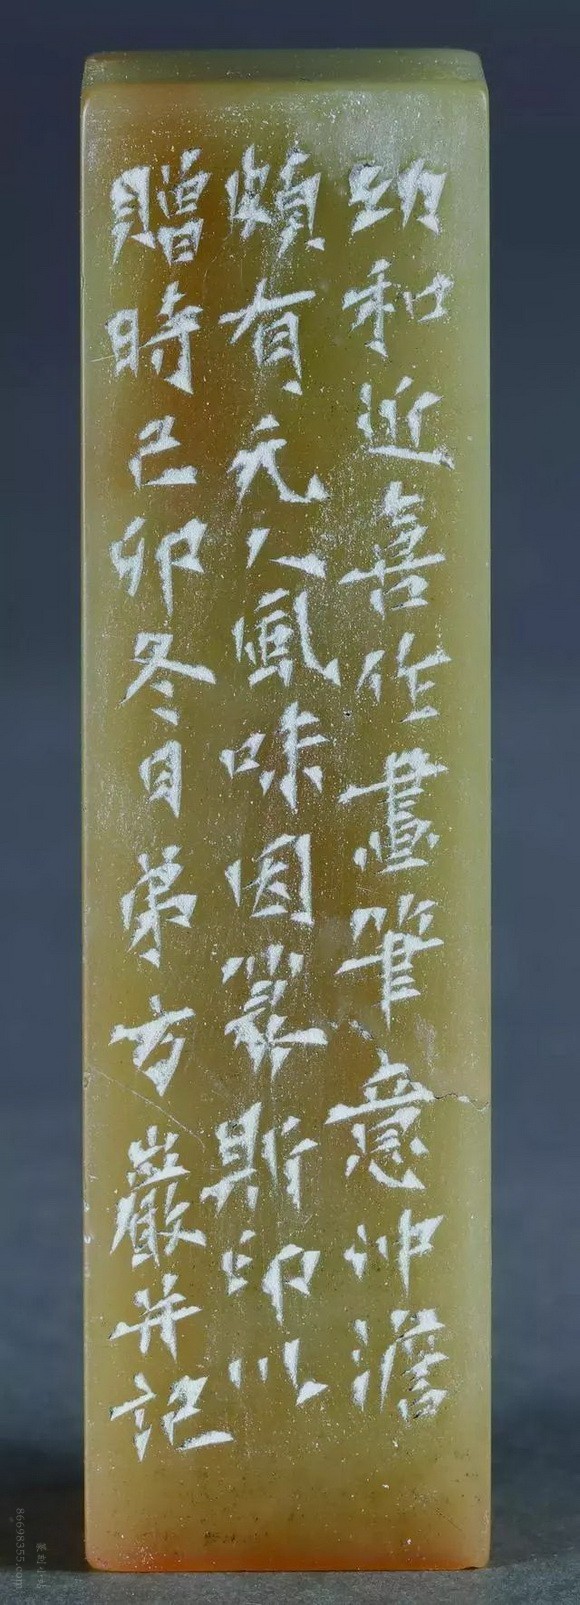 幼和近喜作畫筆意沖澹
頗有元人風味因篆斯印以
贈時己卯冬日弟方巖并記
86698355.com